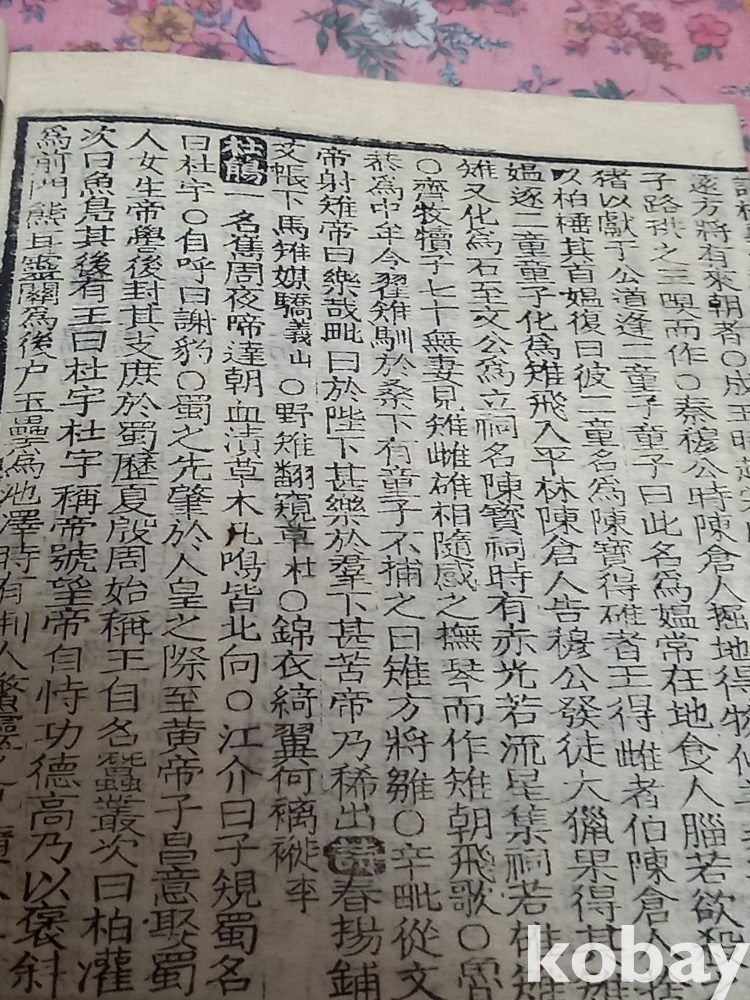 遠方將有來朝者○成王時
子路拱之三嗅而作○秦穆公時陳倉人掘地得物
猪以獻于公道逢二童子童子曰此名爲媼常在地食人腦若欲
以柏棰其首媼復曰彼二童名爲陳寶得䧳者王得雌者伯陳倉人
媼逐二童童子化爲雉飛入平林陳倉人告穆公發徒大獵果得其
雉又化爲石至文公爲立祠名陳寶祠時有赤光若流星集祠若
○齊牧犢子七十無妻見雉雌䧳相隨感之撫琴而作雉朝飛歌○魯
恭爲中牟令翟雉馴於桑下有童子不捕之曰雉方將雛○辛毗從文
帝射雉帝曰樂哉毗曰於陛下甚樂於羣下甚苦帝乃稀出 春揚鋪
艾帳下馬雉媒驕義山○野雉翻窺草杜○錦衣綺翼何褵褷李
杜鵑一名嶲周夜啼達朝血漬草木凡鳴皆北向○江介曰子規蜀名
曰杜宇○自呼曰謝豹○蜀之先肇於人皇之際至黃帝子昌意娶蜀
人女生帝嚳後封其支庶於蜀歷夏殷周始稱王自名蠶叢次曰柏灌
次曰魚鳧其後有王曰杜宇杜宇稱帝號望帝自恃功德高乃以褒斜
爲前門熊耳靈關爲後户玉壘爲池澤時有荊人
kobay